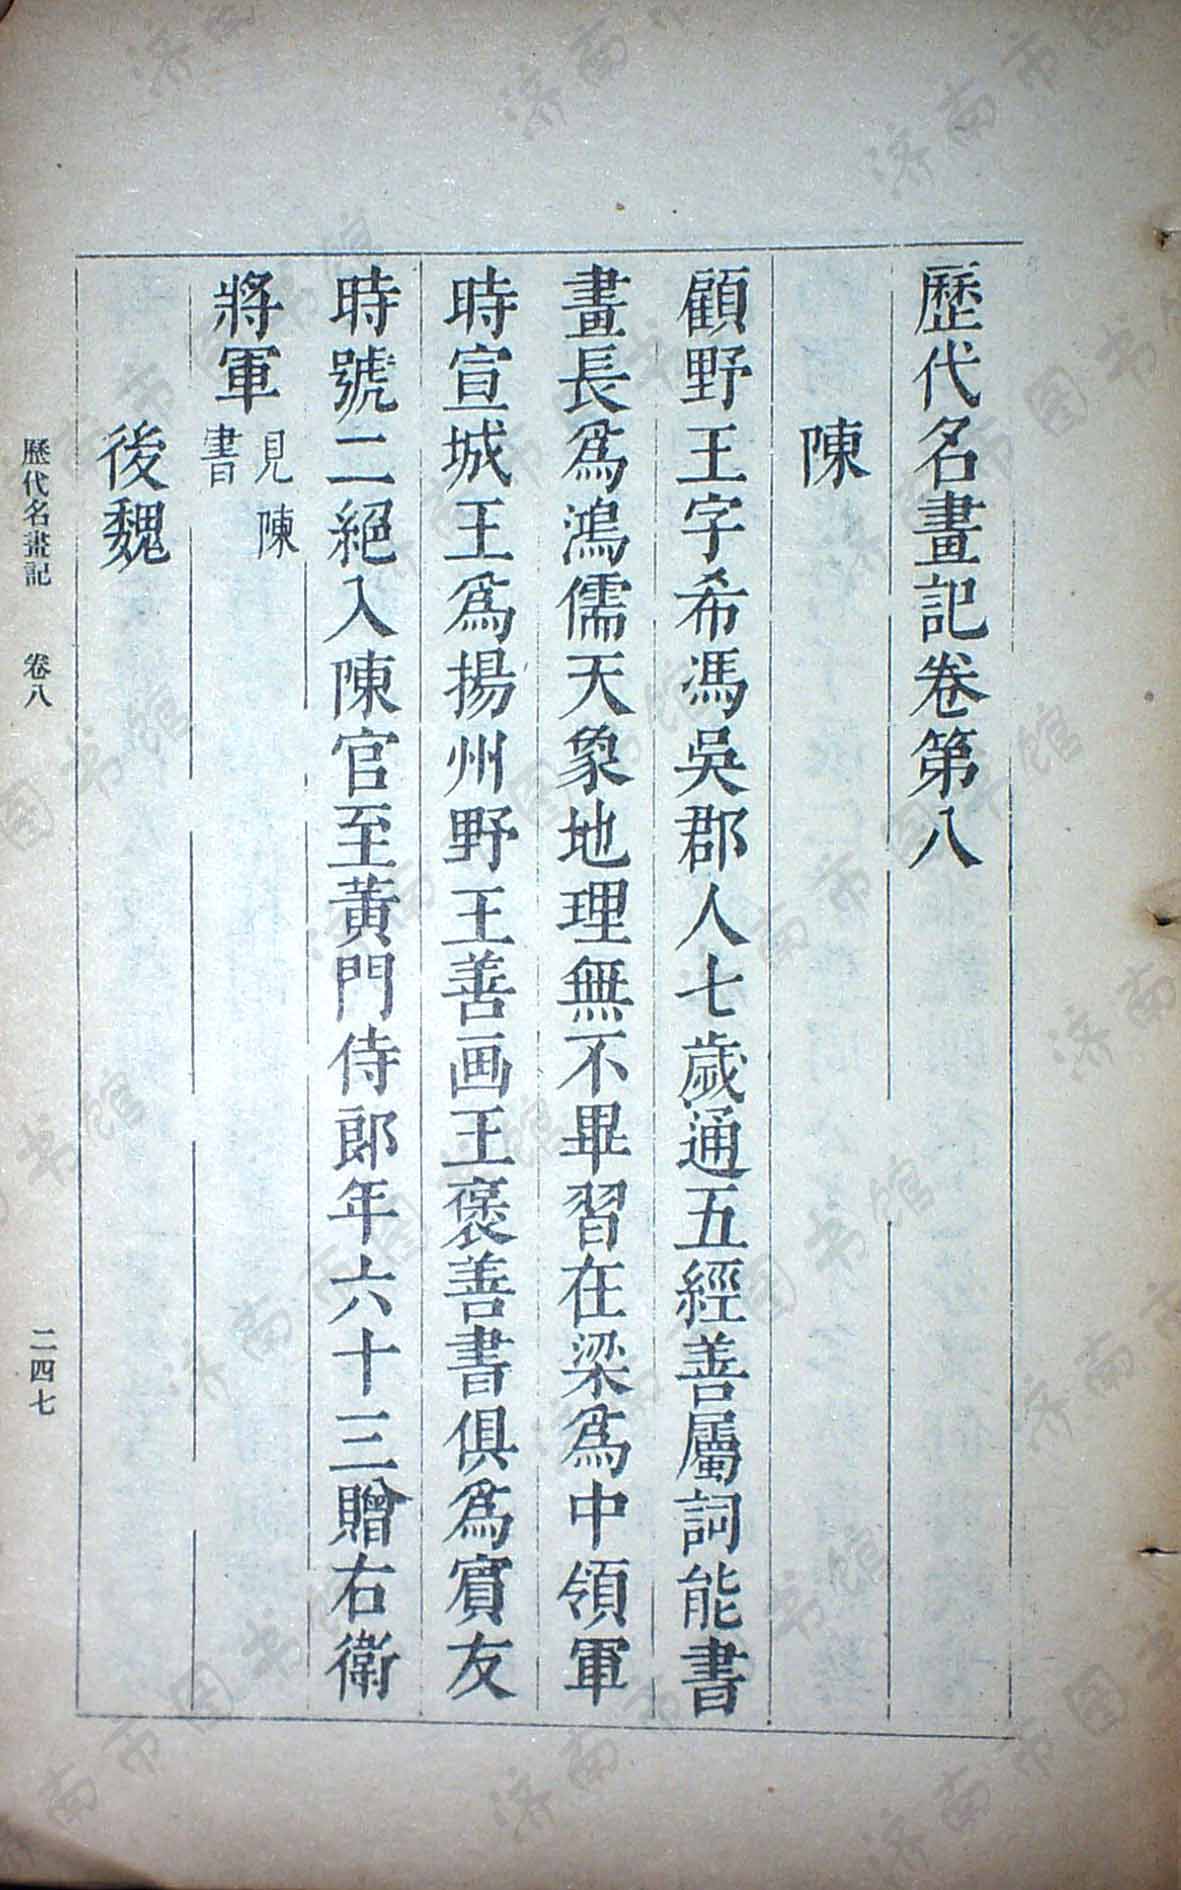 歷代名畫記卷第八
陳
顧野王字希馮吳郡人七歲通五經善屬詞能書
畫長爲鴻儒天象地理無不畢習在梁爲中領軍
時宣城王爲揚州野王善画王褒善書俱爲賓友
時號二絕入陳官至黃門侍郎年六十三贈右衛
將軍見陳書
後魏
歷代名畫記 卷八 二四七
济南市图书馆